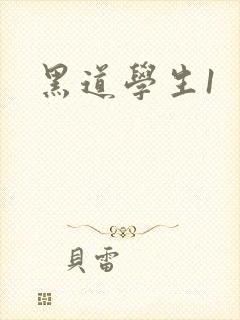 黑道學生1
貝雷